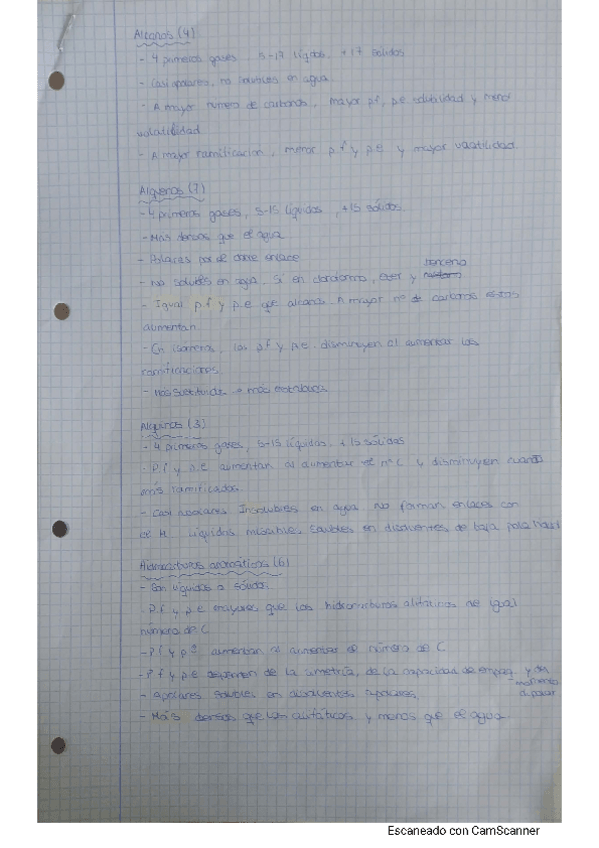 Alcanos (4)
- 4 primeros gases 5-17 líqidos, +17 sólidos
- Casi apolares, no solubles en agua.
- A mayor número de carbonos, mayor pf, pe solubilidad y menor
volatilidad
- A mayor ramificación, menor pf y pe y mayor volatilidad.
Alquenos (7)
- 4 primeros gases, 5-15 líquidos, +15 sólidos.
- Más densos que el agua
- Polares por el doble enlace
- No solubles en agua. Si en cloroformo, eter y benceno
- Igual p.f y p.e que alcanos. A mayor nº de carbonos estos
aumentan.
- En isómeros, los pf y p.e. disminuyen al aumentar las
ramificaciones.
- Más sustituidos → más estables
Alquinos (3)
- 4 primeros gases, 5-15 líquidos, +15 sólidos
- P.f y p.e aumentan al aumentar el nº C y disminuyen cuando
más ramificados.
- Casi apolares Insolubles en agua. No forman enlaces con
el H. Líquidos miscible, solubles en disolventes de baja polaridad
Hidrocarburos aromáticos (6)
- Son líquidos o sólidos
- P.f y p.e mayores que los hidrocarburos alifáticos de igual
número de C.
- Pf y pe aumentan al aumentar el número de C
- Pf y p.e dependen de la simetría, de la capacidad de empaq. y del
momento
dipolar
- Apolares solubles en disolventes apolares.
- Más densos que los alifáticos y menos que el agua.
Escaneado con CamScanner